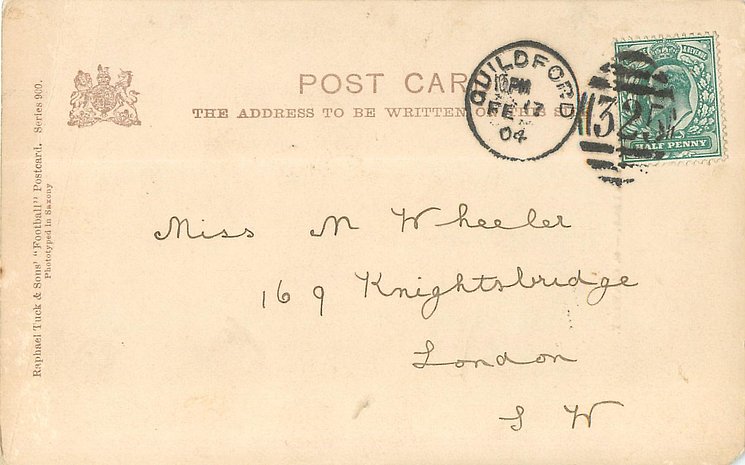 POST CARD
THE ADDRESS TO BE WRITTEN ON THIS SIDE
GUILDFORD
PM
FE 17
04
325
HALF PENNY
Miss M Wheeler
169 Knightsbridge
London
S W
Raphael Tuck & Sons' "Football" Postcard. Series 900.
Phototyped in Saxony